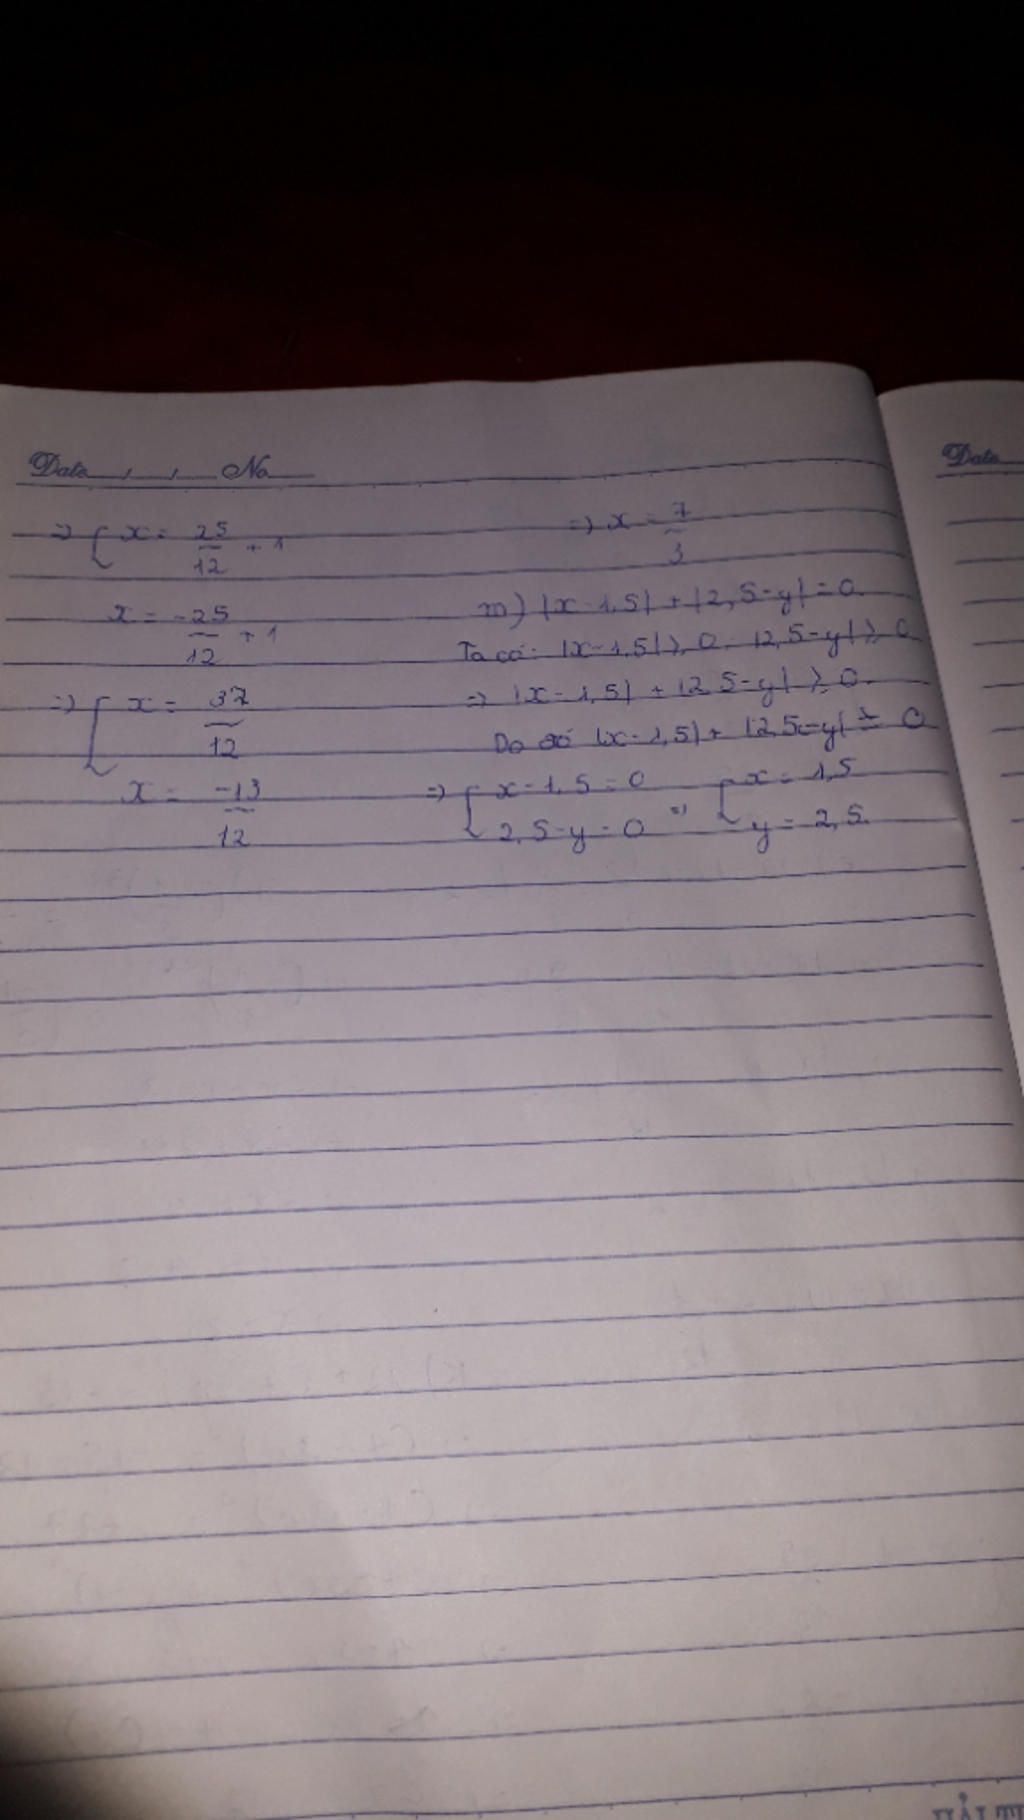 Date , , No
=> [ x = 25/12 + 1
x = -25/12 + 1
=> [ x = 37/12
x = -13/12
=> x = 7/3
m) |x - 1,5| + |2,5 - y| = 0
Ta có: |x - 1,5| ≥ 0. |2,5 - y| ≥ 0
=> |x - 1,5| + |2,5 - y| ≥ 0.
Do đó |x - 1,5| + |2,5 - y| = 0
=> [ x - 1,5 = 0 => [ x = 1,5
2,5 - y = 0 y = 2,5.
Date